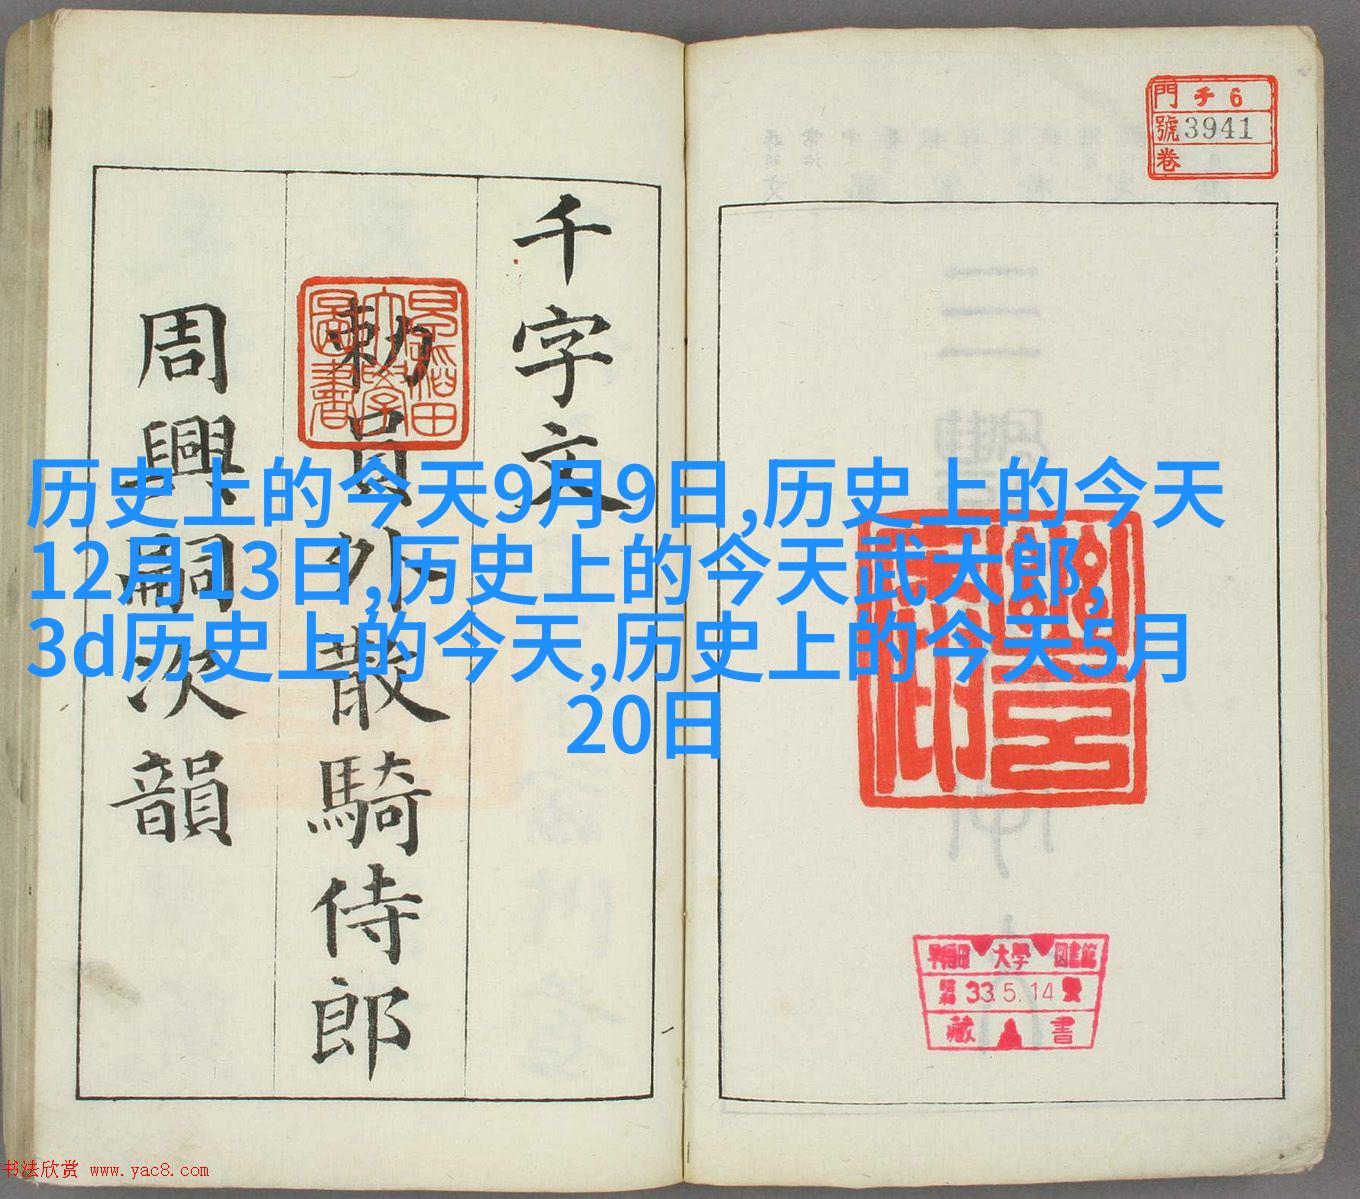 門 千 6
號 3941
卷
千字文
勅員外散騎侍郎
周興嗣次韻
早稲田大學圖書
历史上的今天9月9日,历史上的今天
12月13日,历史上的今天武大郎,
3d历史上的今天,历史上的今天5月
20日
早稲田大學圖書館
33.5.14
藏書
书法欣赏 www.yac8.com